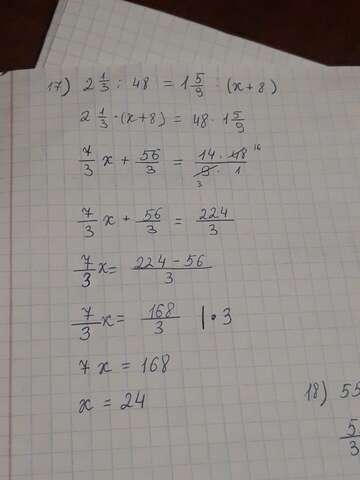 17) 2 1/3 : 48 = 1 5/9 : (x+8)
2 1/3 · (x+8) = 48 · 1 5/9
7/3 x + 56/3 = 14 · 48 16 / 9 · 1 3
7/3 x + 56/3 = 224/3
7/3 x = 224 - 56 / 3
7/3 x = 168/3 | · 3
7x = 168
x = 24
18) 55
5/3